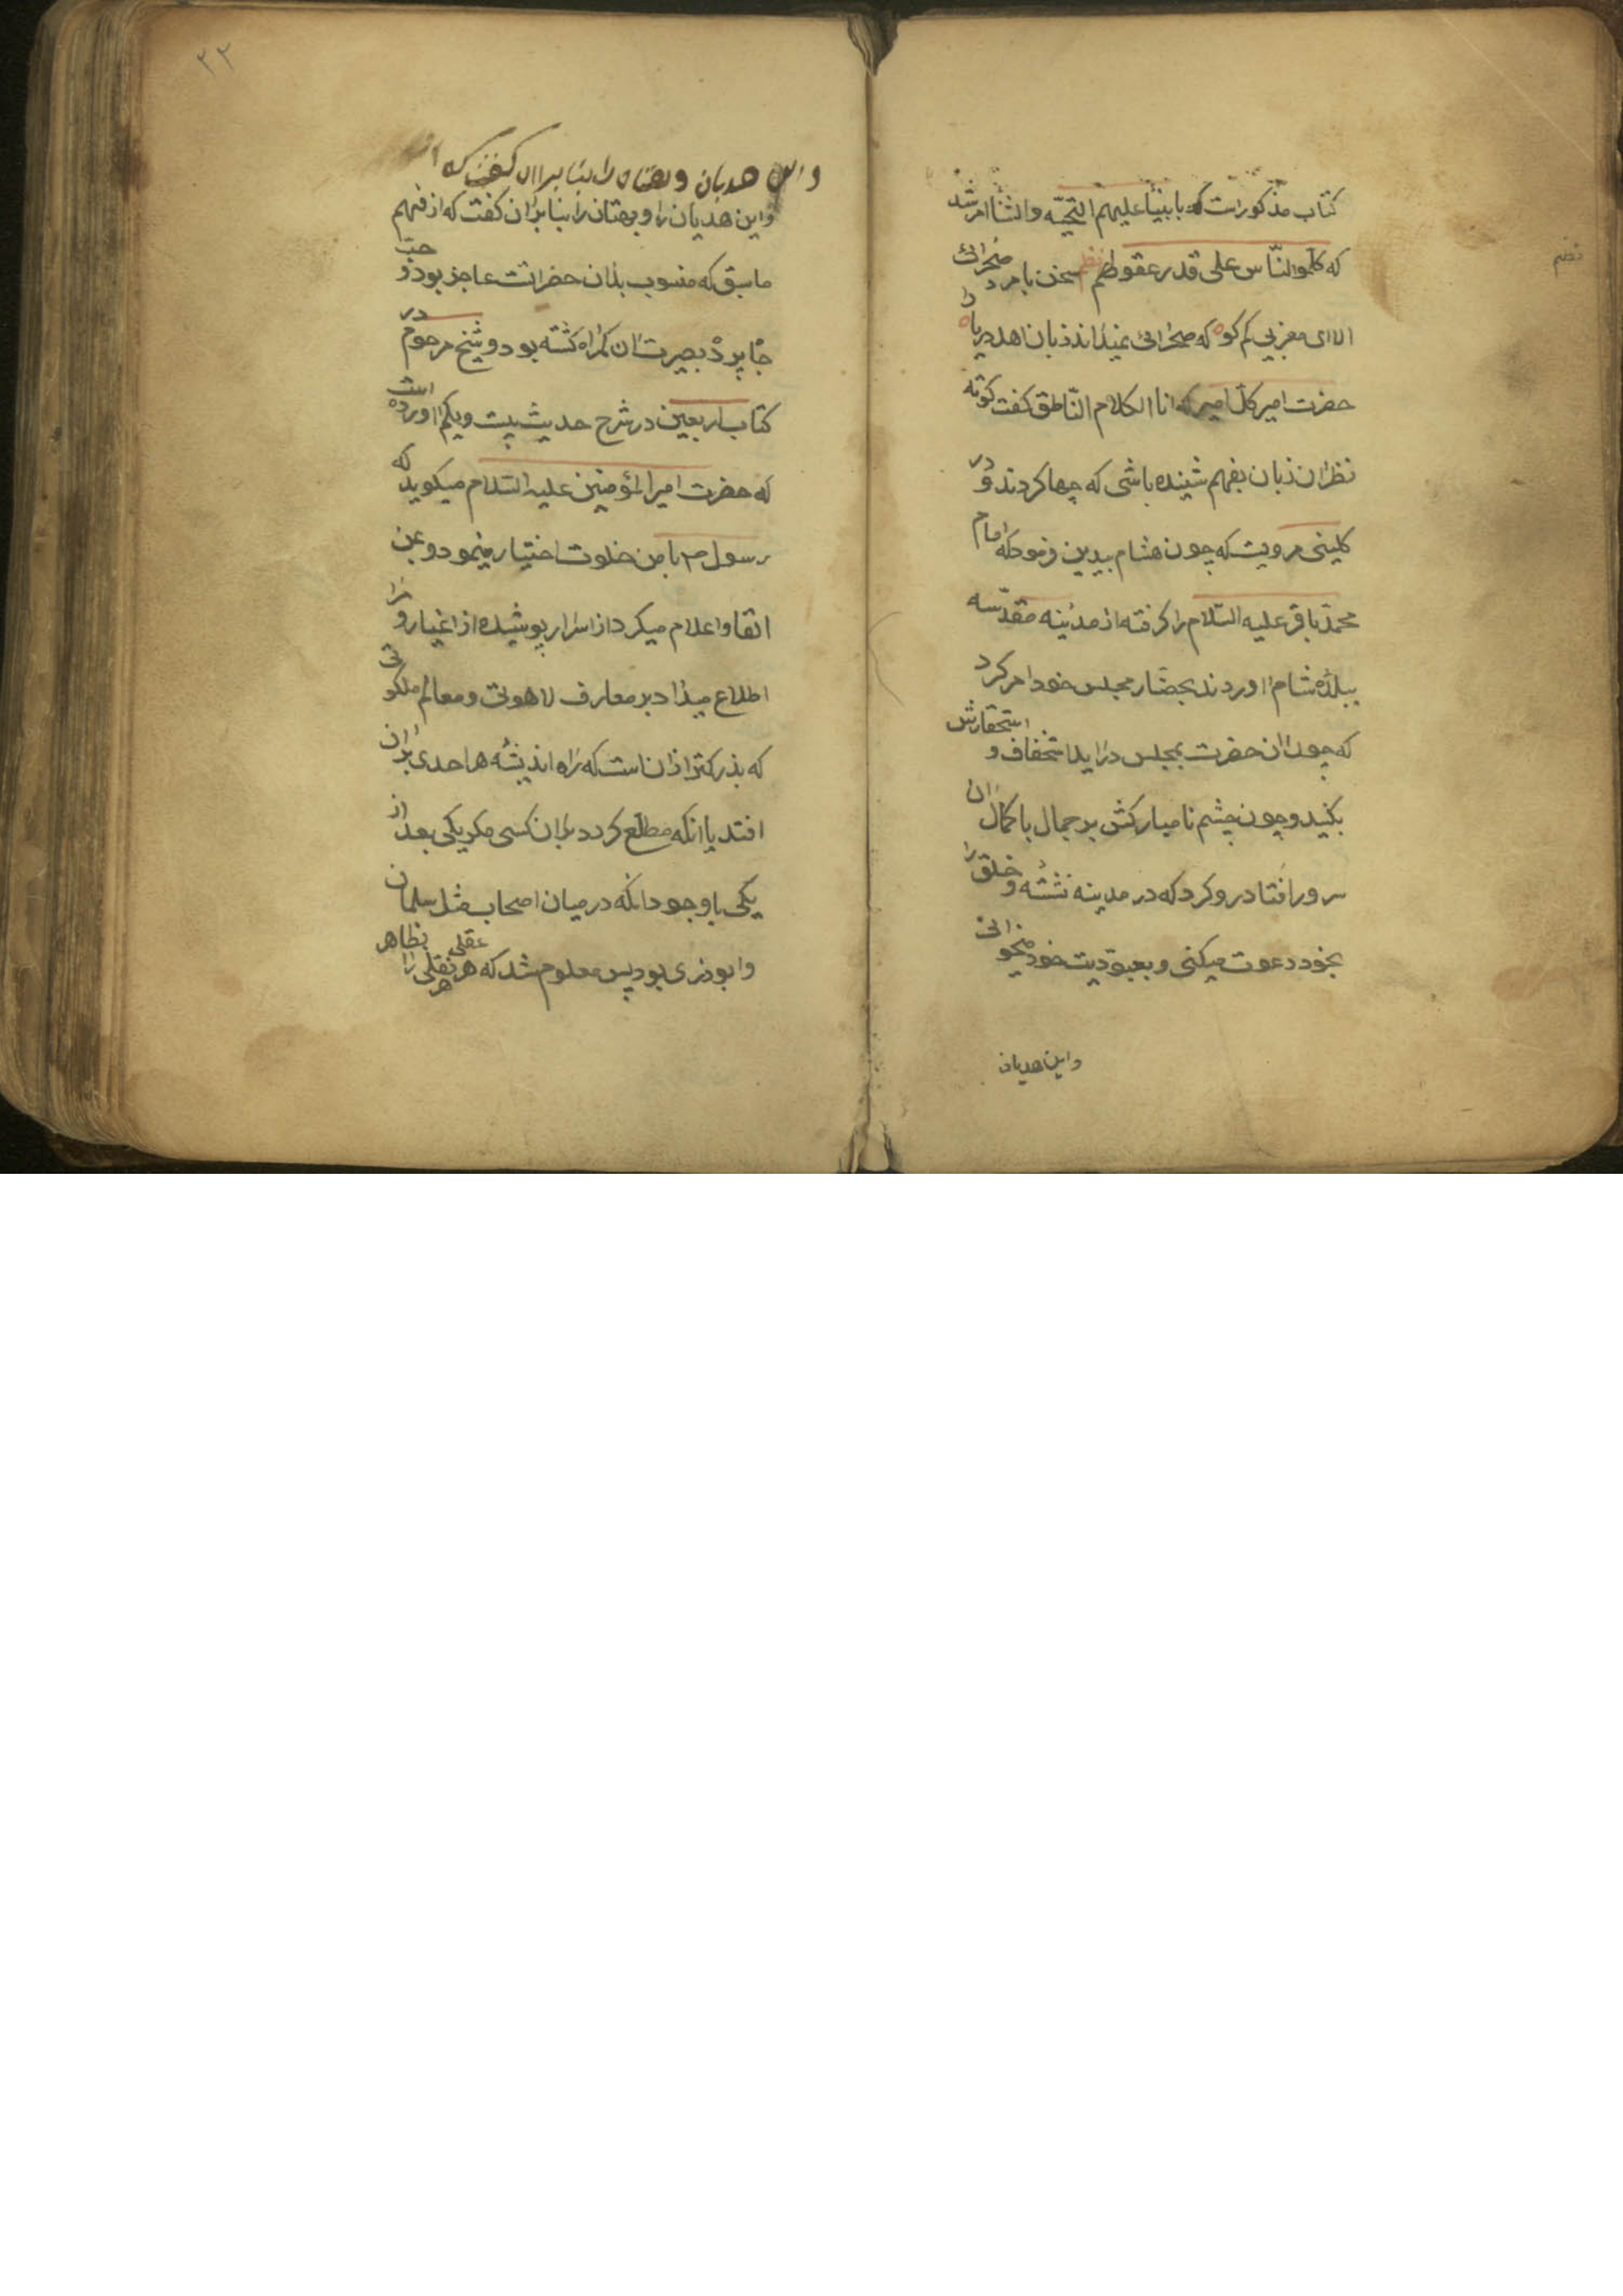 کتاب مذکور است که بابنیا علیهم التحیّه والثنا امر شد
که کلّموا النّاس علی قدر عقولهم نظم سخن با مرد صحرائی
الا ای مغربی کم کو که صحرائی نمیداند زبان اهل دریا را
حضرت امیر کلّ امیر که انا الکلام النّاطق گفت کوته
نظران زبان بفهم شنیده باشی که چها کردند و در
کلینی مرویست که چون هشام بیدین فرمود که امام
محمّد باقر علیه السّلام را گرفته از مدینه مقدّسه
ببلدهٔ شام آوردند بحضّار مجلس خود امر کرد
که چون آن حضرت بمجلس درآید استخفاف و استحقارش
بکنید و چون چشم نامبارکش بر جمال با کمال آن
سرور افتاد رو کرد که در مدینه نشسته و خلق را
بخود دعوت میکنی و بعبودیت خود میخوانی
واین هدیان
نضم
۲۲
واین هدیان و بهتان را بنا بران گفت که از
واین هذیان را و بهتان را بنا بران گفت که از فهم
ماسبق که منسوب بذان حضراتست عاجز بود و حبّ
جاه پردهٔ بصیرتشان گمراه گشته بود و شیخ مرحوم در
کتاب اربعین در شرح حدیث بیست و یکم آورده است
که حضرت امیر المؤمنین علیه السّلام میگوید که
رسول ص با من خلوت اختیار مینمود و بمن
القا و اعلام میکرد از اسرار پوشیده از اغیار و مرا
اطلاع میداد بر معارف لاهوتی و معالم ملکوتی
که بذرکتر ازانست که راه اندیشه هر احدی بران
افتد یا آنکه مطلّع کردد بران کسی مکر یکی بعد از
یکی با وجود آنکه در میان اصحاب مثل سلمان
و ابوذری بود پس معلوم شد که هر عقلی هر نقلی را بظاهر